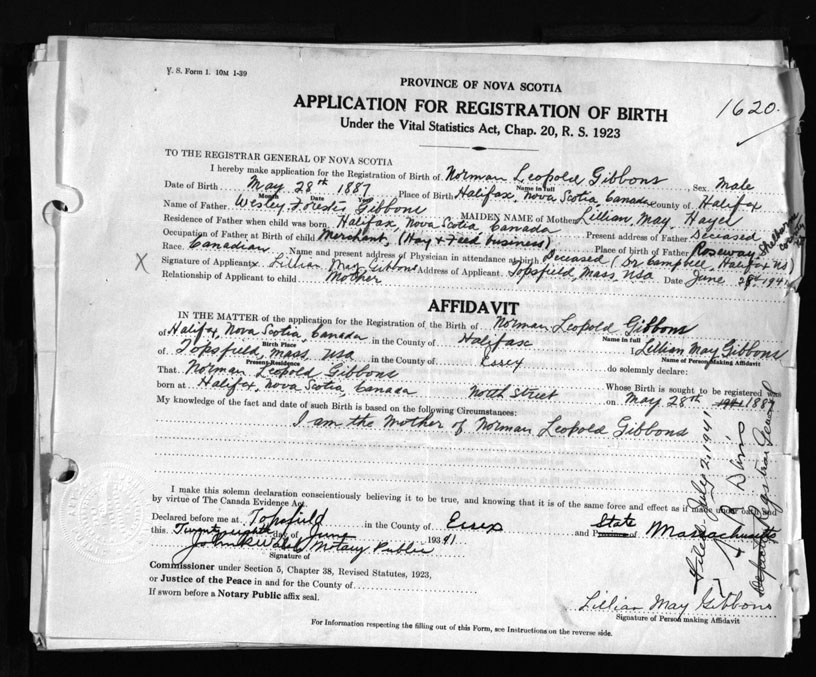 V. S. Form 1. 10M 1-39
PROVINCE OF NOVA SCOTIA
APPLICATION FOR REGISTRATION OF BIRTH
1620.
Under the Vital Statistics Act, Chap. 20, R. S. 1923
TO THE REGISTRAR GENERAL OF NOVA SCOTIA
I hereby make application for the Registration of Birth of Norman Leopold Gibbons, Sex Male
Name in full
Date of Birth May 28th 1887 Place of Birth Halifax, Nova Scotia, Canada County of Halifax
Month Date Year
Name of Father Wesley Forester Gibbons MAIDEN NAME of Mother Lillian May
Residence of Father when child was born Halifax, Nova Scotia, Canada Present address of Father Deceased
Occupation of Father at Birth of child Merchant, (Hay & Feed business) Place of birth of Father Roseway Shelburne County
Race Canadian Name and present address of Physician in attendance at birth Deceased (Dr Campbell, Halifax NS)
X Signature of Applicant x Lillian May Gibbons Address of Applicant Topsfield, Mass, USA Date June 194
Relationship of Applicant to child Mother
AFFIDAVIT
IN THE MATTER of the application for the Registration of the Birth of Norman Leopold Gibbons
Name in full
of Halifax, Nova Scotia, Canada in the County of Halifax I Lillian May Gibbons
Birth Place Name of Person Making Affidavit
of Topsfield, Mass, USA in the County of Essex do solemnly declare:
Present Residence
That Norman Leopold Gibbons Whose Birth is sought to be registered was
born at Halifax, Nova Scotia, Canada North Street on May 28th 1887
My knowledge of the fact and date of such Birth is based on the following Circumstances:
I am the mother of Norman Leopold Gibbons
I make this solemn declaration conscientiously believing it to be true, and knowing that it is of the same force and effect as if made under oath and
by virtue of The Canada Evidence Act.
Declared before me at Topsfield in the County of Essex and Province of State Massachusetts
this Twenty eighth day of June 193 41
John Notary Public
Signature of
Commissioner under Section 5, Chapter 38, Revised Statutes, 1923,
or Justice of the Peace in and for the County of
If sworn before a Notary Public affix seal.
Lillian May Gibbons
Signature of Person making Affidavit
For Information respecting the filling out of this Form, see Instructions on the reverse side.
Filed July 2, 1941
Davis
Deputy Registrar General